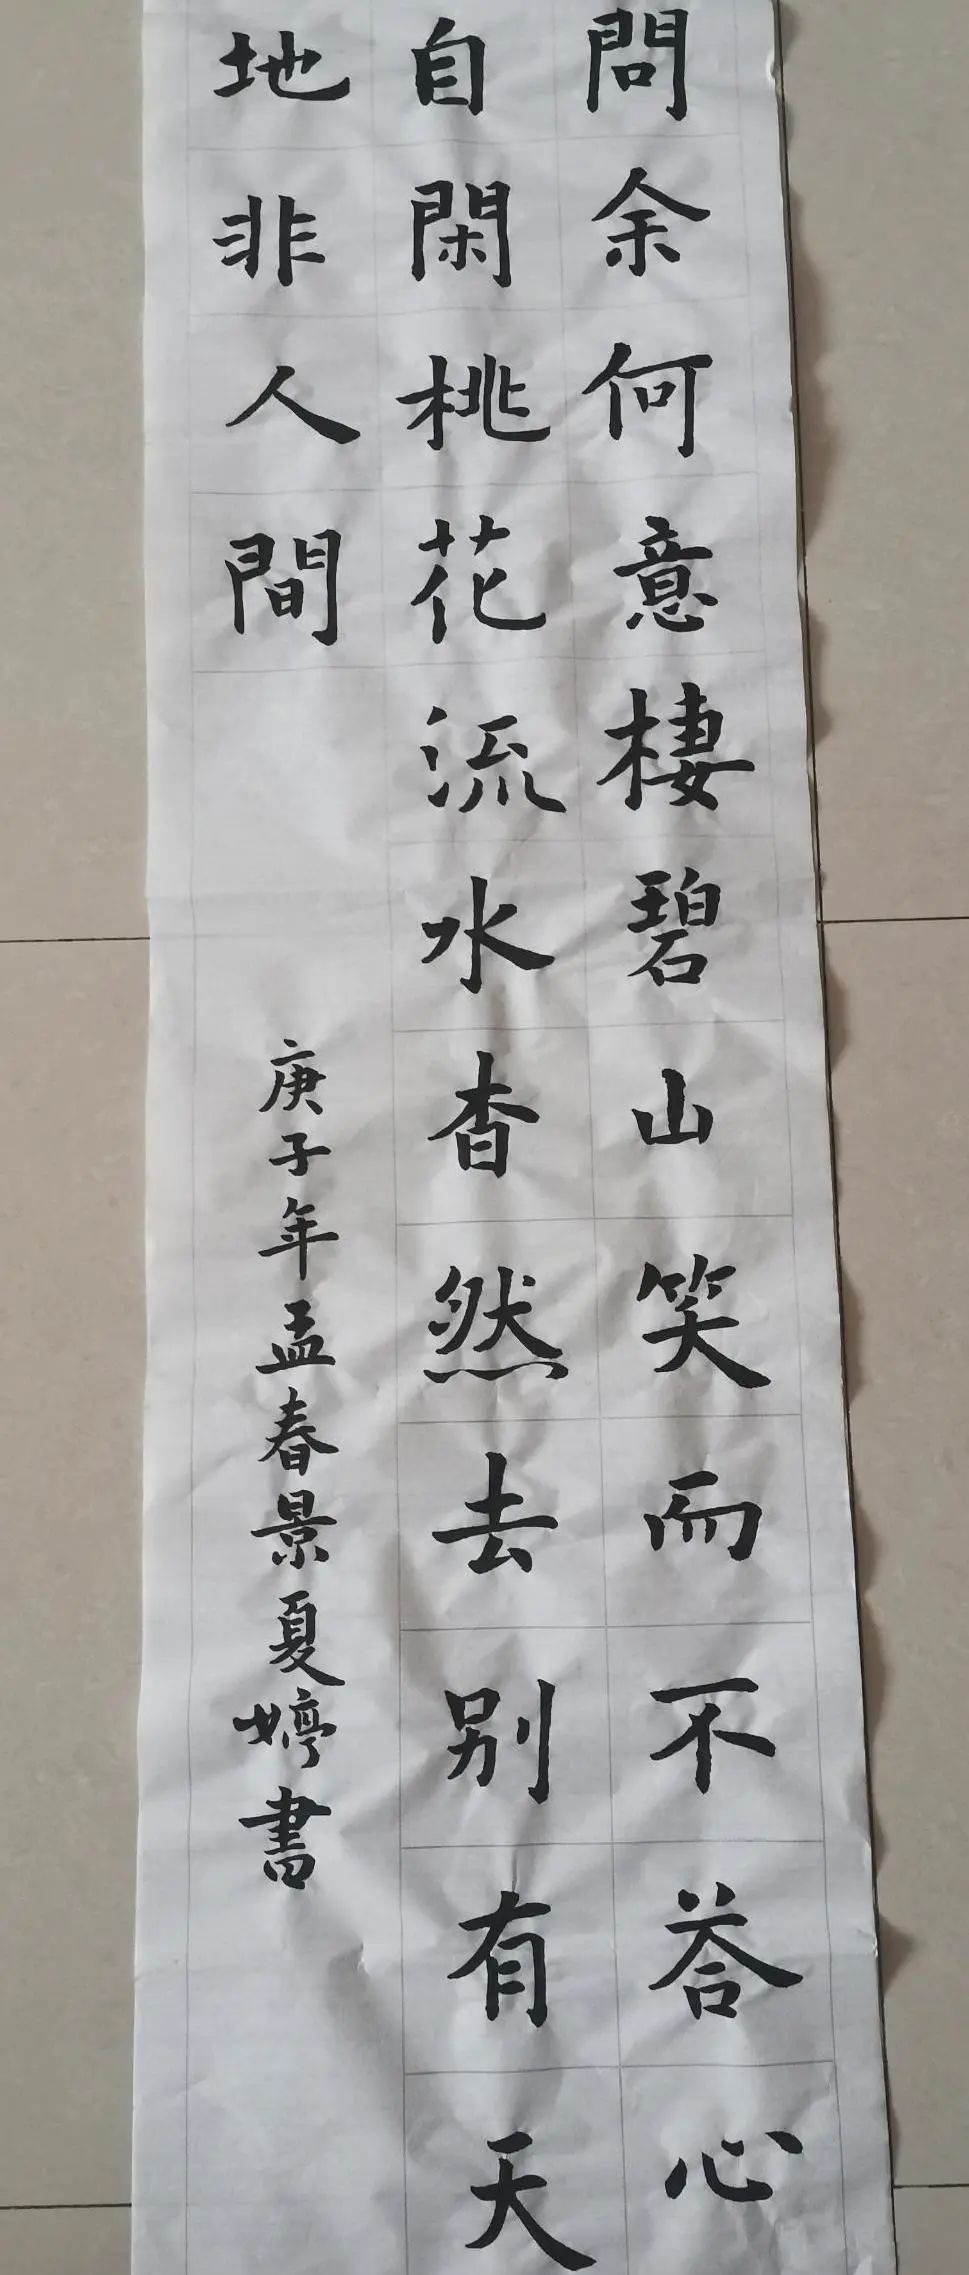 問余何意棲碧山笑而不荅心
自閑桃花流水杳然去别有天
地非人間
庚子年孟春景夏婷書